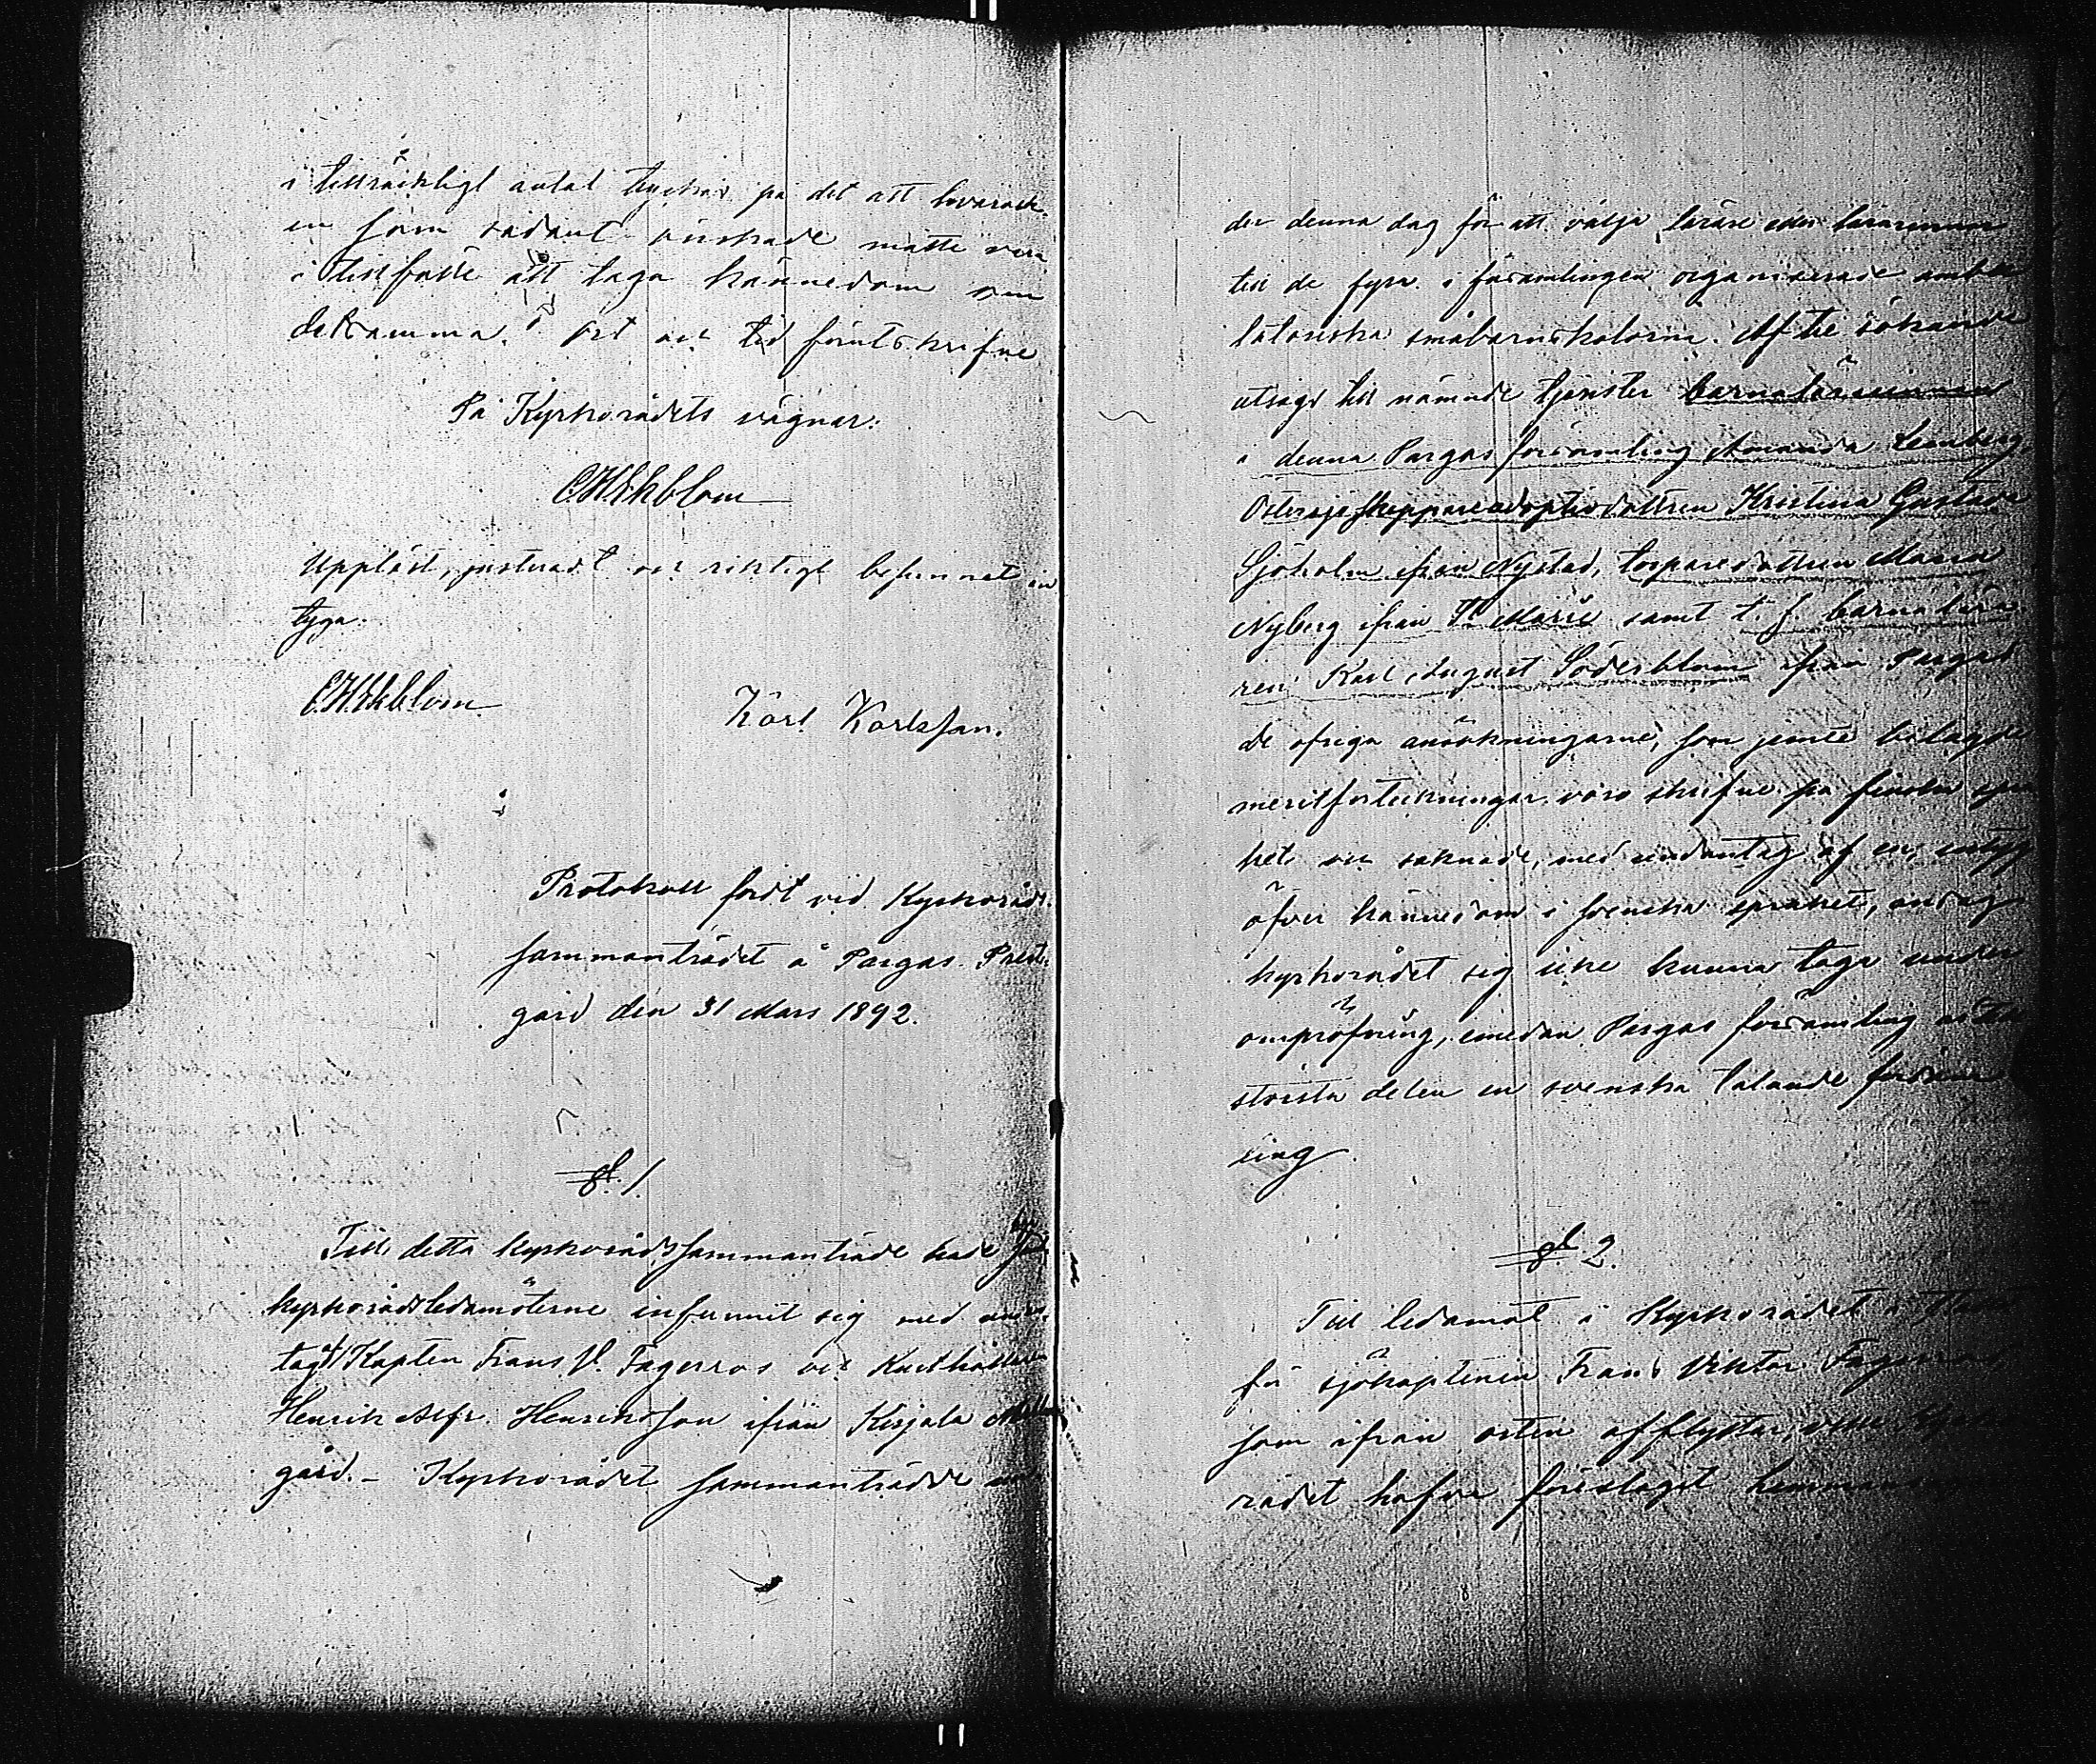 i tillräckligt antal tryckas på det att
en hvar som sådant önskade måtte vara
i tillfälle att taga kännedom om
detsamma. Ort och tid förutskrifne
På Kyrkorådets vägnar:
C.H. Ekblom
Uppläst, justeradt och riktigt befunnet in
tyga.
C.H. Ekblom
Karl Karlsson.
Protokoll fördt vid Kyrkoråds
sammanträdet å Pargas Prest
gård den 31 Mars 1892.
§ 1.
Till detta kyrkorådssammanträde hade
kyrkorådsledamöterne infunnit sig med undan
tag af Kapten Frans V. Fagerroos och
Henrik Alfr. Henriksson ifrån Kirjala
gård. - Kyrkorådet sammanträdde
der denna dag för att välja lärare eller lärarinnor
till de fyra i församlingen organiserade ambu
latoriska småbarnskolorna. Af tie sökande
utsågs till nämnde tjenster barnalärarinnan
i denna Pargas församling Amanda Lemberg,
Östersjöskeppareadoptivdottren Kristina Gustava
Sjöholm ifrån Nystad, torparedottren Maria
Nyberg ifrån St Marie samt t. f. barnalära
ren Karl August Söderblom ifrån Pargas
de öfriga ansökningarne, som jemte bilagde
meritförteckningar voro skrifne på finska språ
ket och saknade, med undantag af en, intyg
öfver kännedom i svenska språket, ansåg
kyrkorådet sig icke kunna taga under
ompröfning, emedan Pargas församling är till
största delen en svenska talande församl
ing.
§ 2.
Till ledamot i Kyrkorådet i stället
för sjökaptenen Frans Viktor Fagerroos
som ifrån orten afflyttar,
rådet hafva föreslaget